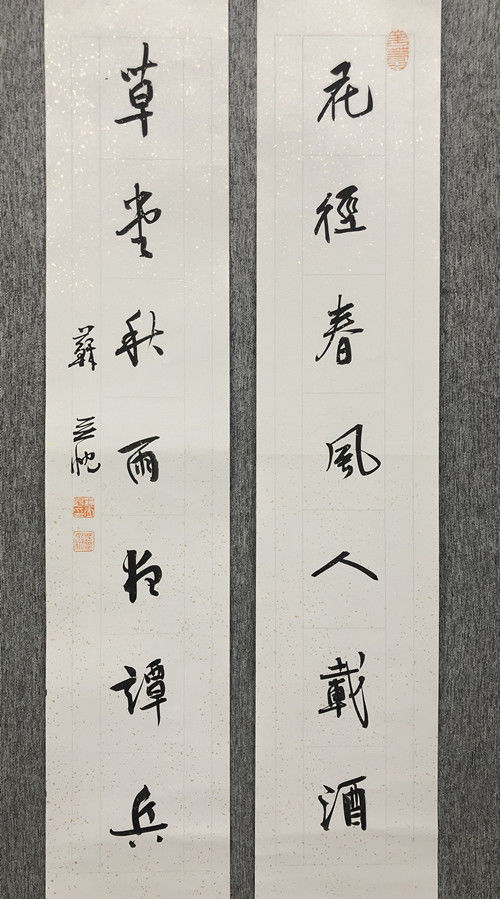 花徑春風人載酒
草堂秋雨夜譚兵
蘇